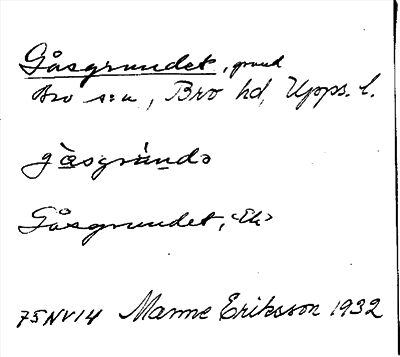 Gåsgrundet, grund
Bro s:n, Bro hd, Upps. l.
Gåsgrundet, <Ek>
75NV14 Manne Eriksson 1932